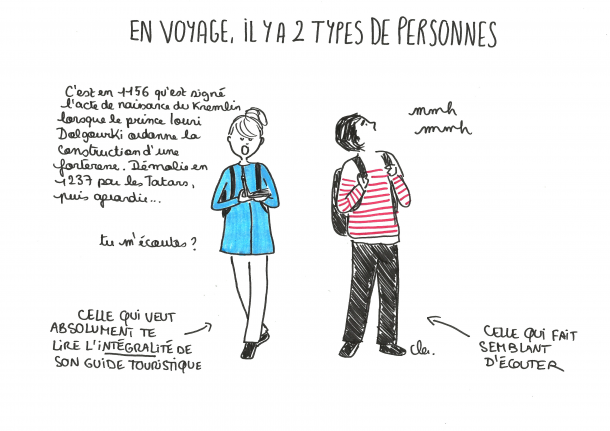 EN VOYAGE, IL Y A 2 TYPES DE PERSONNES
C'est en 1156 qu'est signé
l'acte de naissance du Kremlin
lorsque le prince Iouri
Dolgourki ordonne la
construction d'une
forteresse. Démolie en
1237 par les Tatars,
puis agrandie...
tu m'écoutes ?
mmh
mmh
CELLE QUI VEUT
ABSOLUMENT TE
LIRE L'INTÉGRALITÉ DE
SON GUIDE TOURISTIQUE
CELLE QUI FAIT
SEMBLANT
D'ÉCOUTER